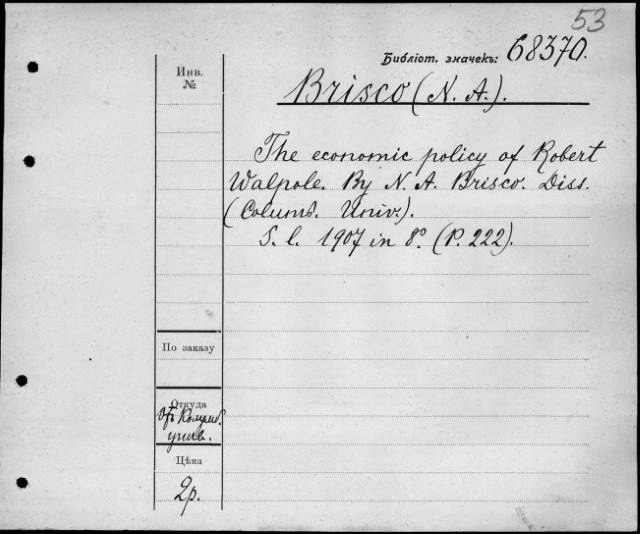 53
Библіот. значекъ: 68370.
Инв.
№
Brisco (N. A.).
The economic policy of Robert
Walpole. By N. A. Brisco. Diss.
(Columb. Univ.).
S. l. 1907 in 8° (P. 222).
По заказу
Откуда
Отъ Колумб.
унив.
Цѣна
2р.